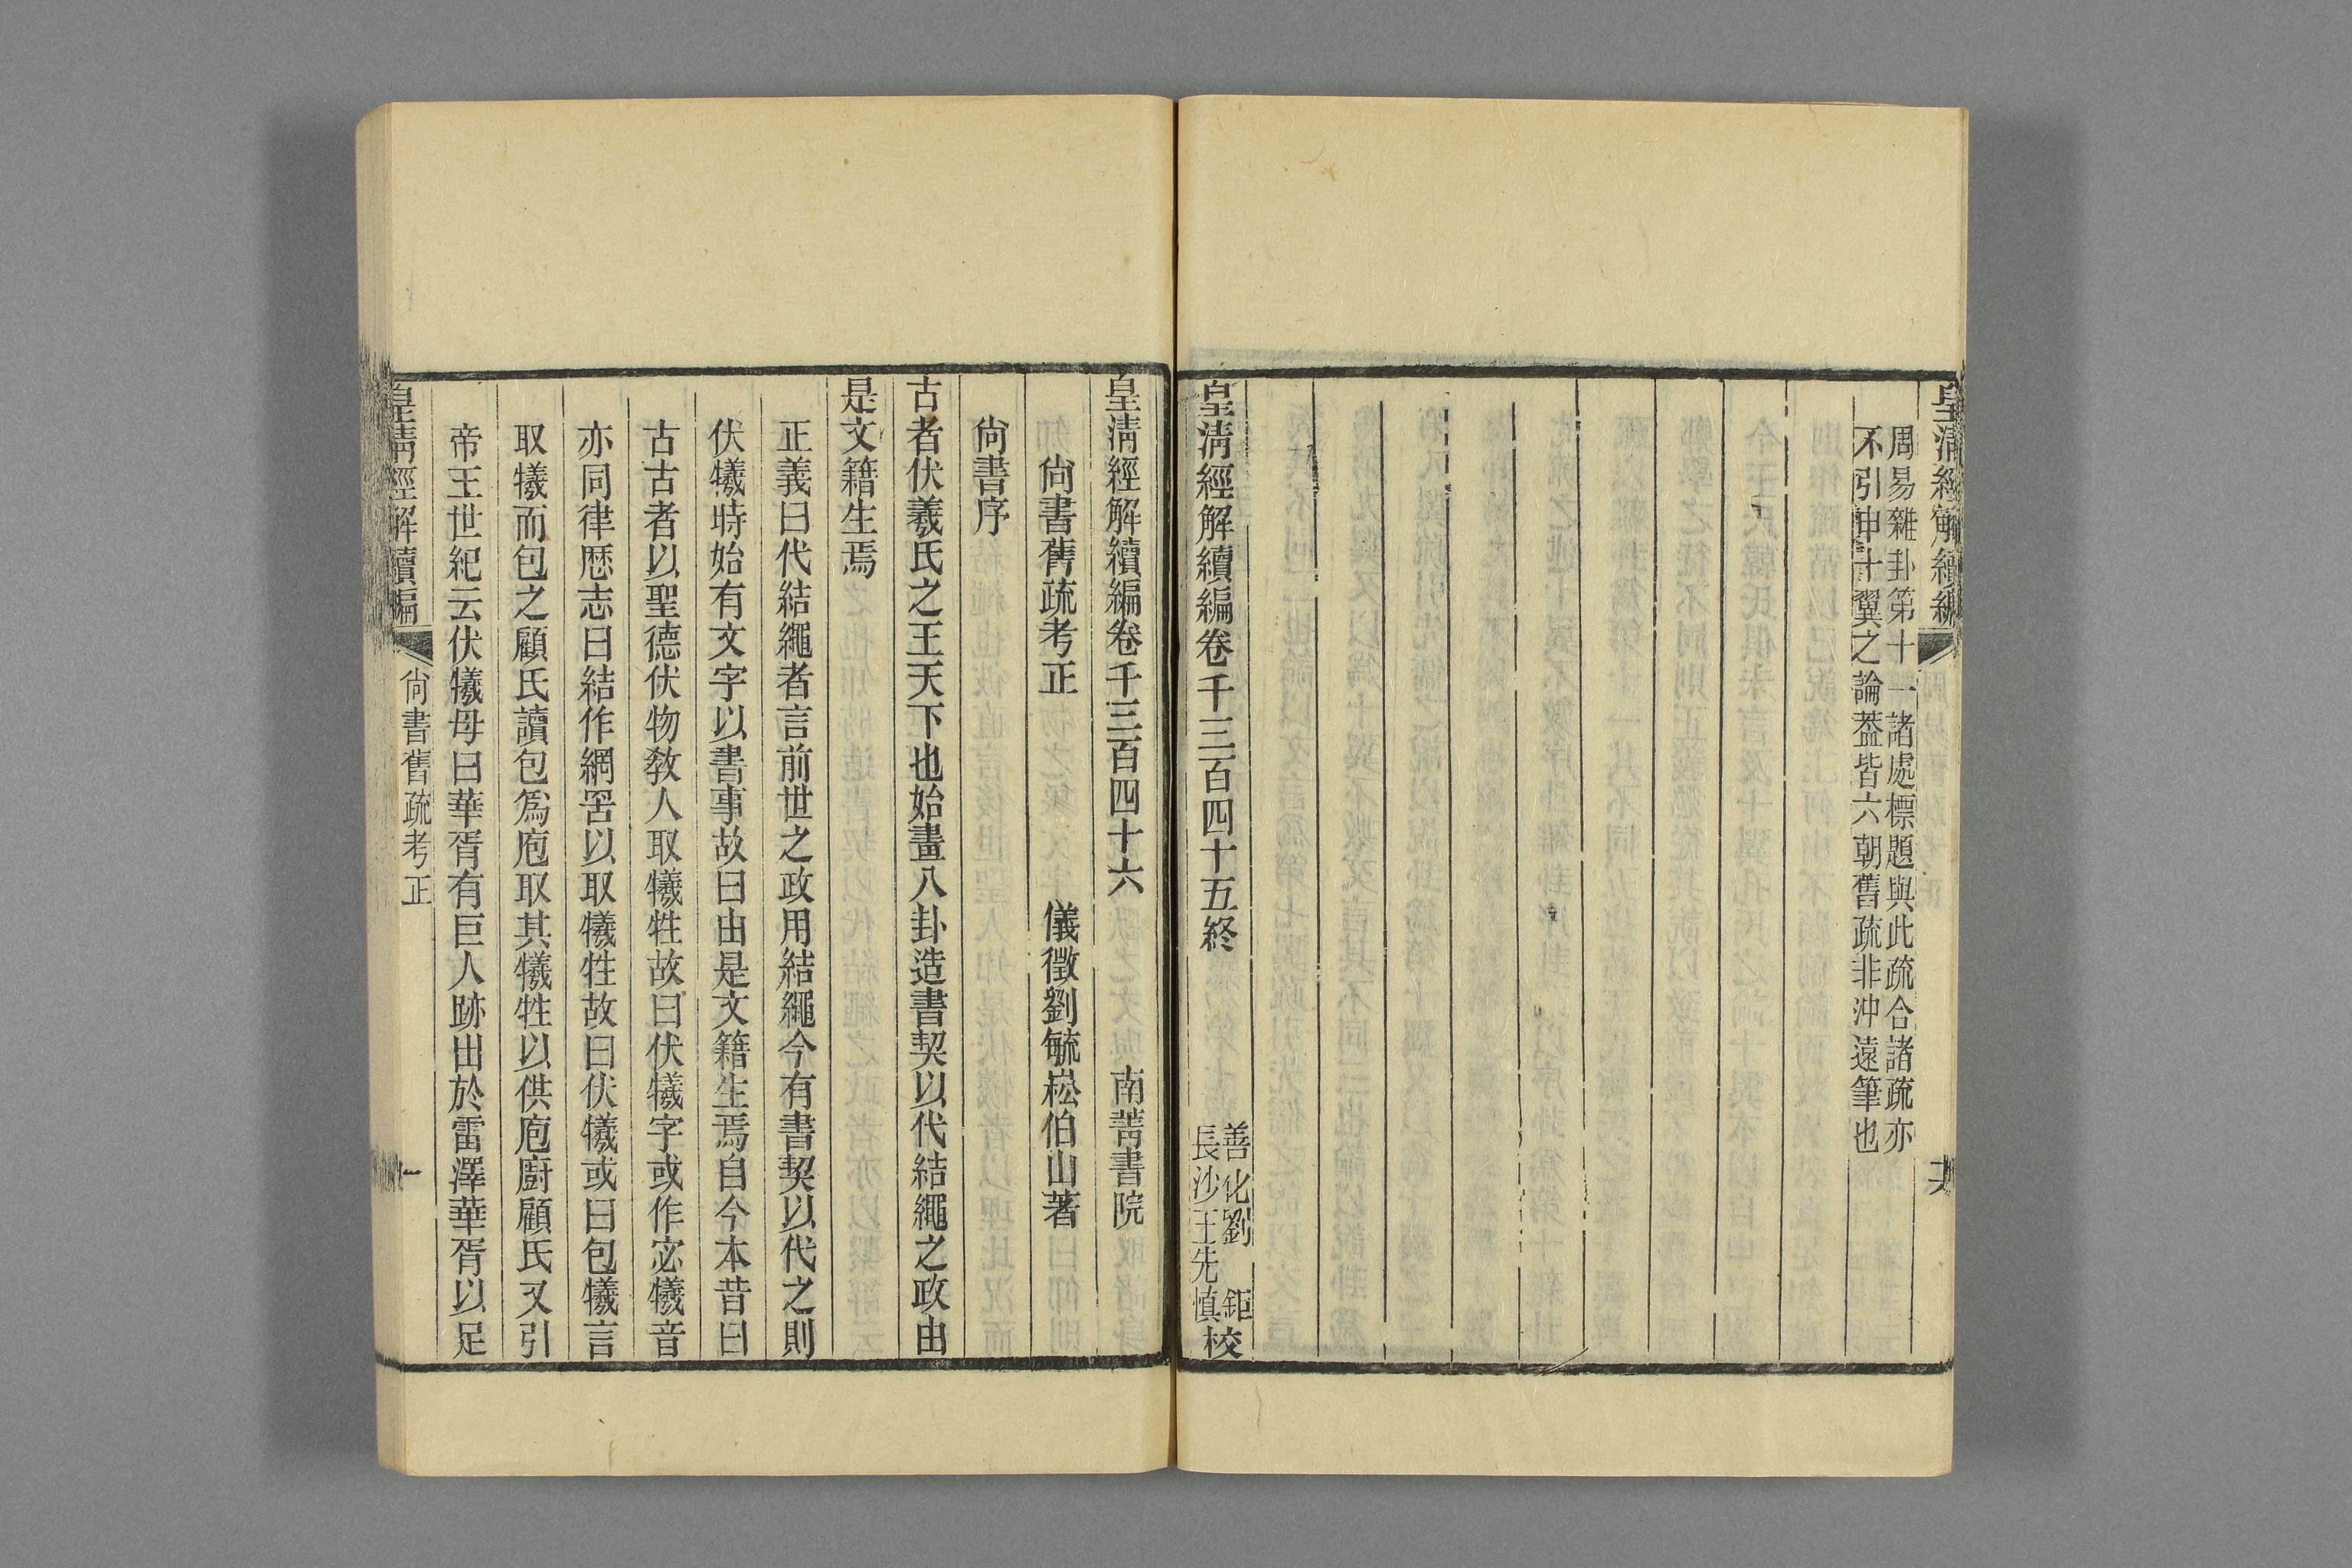 皇清經解續編
周易雜卦第十一諸處標題與此疏合諸疏亦
不引申十翼之論葢皆六朝舊疏非沖遠筆也
皇清經解續編卷千三百四十五終
善化劉鉅
長沙王先慎校
皇清經解續編卷千三百四十六 南菁書院
尙書舊疏考正 儀徵劉毓崧伯山著
尙書序
古者伏羲氏之王天下也始畫八卦造書契以代結繩之政由
是文籍生焉
正義曰代結繩者言前世之政用結繩今有書契以代之則
伏犧時始有文字以書事故曰由是文籍生焉自今本昔曰
古古者以聖德伏物敎人取犧牲故曰伏犧字或作宓犧音
亦同律厯志曰結作網罟以取犧牲故曰伏犧或曰包犧言
取犧而包之顧氏讀包爲庖取其犧牲以供庖廚顧氏又引
帝王世紀云伏犧母曰華胥有巨人跡出於雷澤華胥以足
皇清經解續編 尙書舊疏考正 一